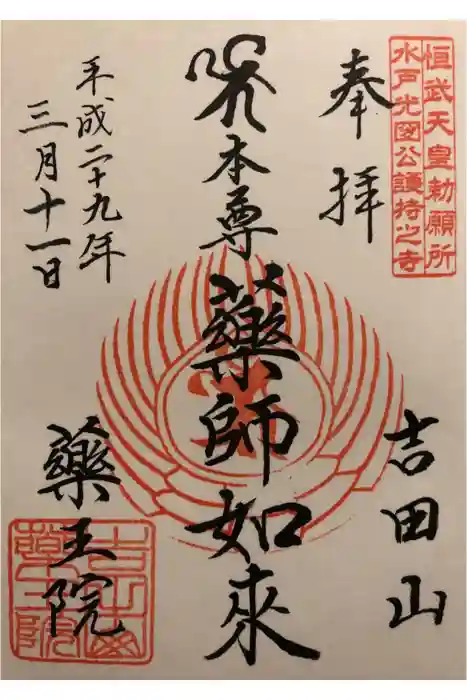 恒武天皇勅願所
水戸光圀公護持之寺
奉拝
吉田山
本尊
薬師如来
平成二十九年
三月十一日
薬王院